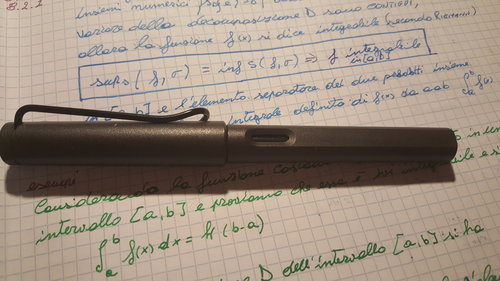 8.2.1
Insiemi numerici
variare della decomposizione D sono contigui,
allora la funzione f(x) si dice integrabile (secondo Riemann)
sup s(f,σ) = inf S(f,σ) ⇒ f integrabile
in [a,b]
[a,b] e l'elemento separatore dei due predetti insiemi
integrale definito di f(x) da a a b ∫ₐᵇ f(x)
esempi
Considerata la funzione
intervallo [a,b] e proviamo che essa è
∫ₐᵇ f(x) dx = K (b-a)
D dell'intervallo [a,b] si ha